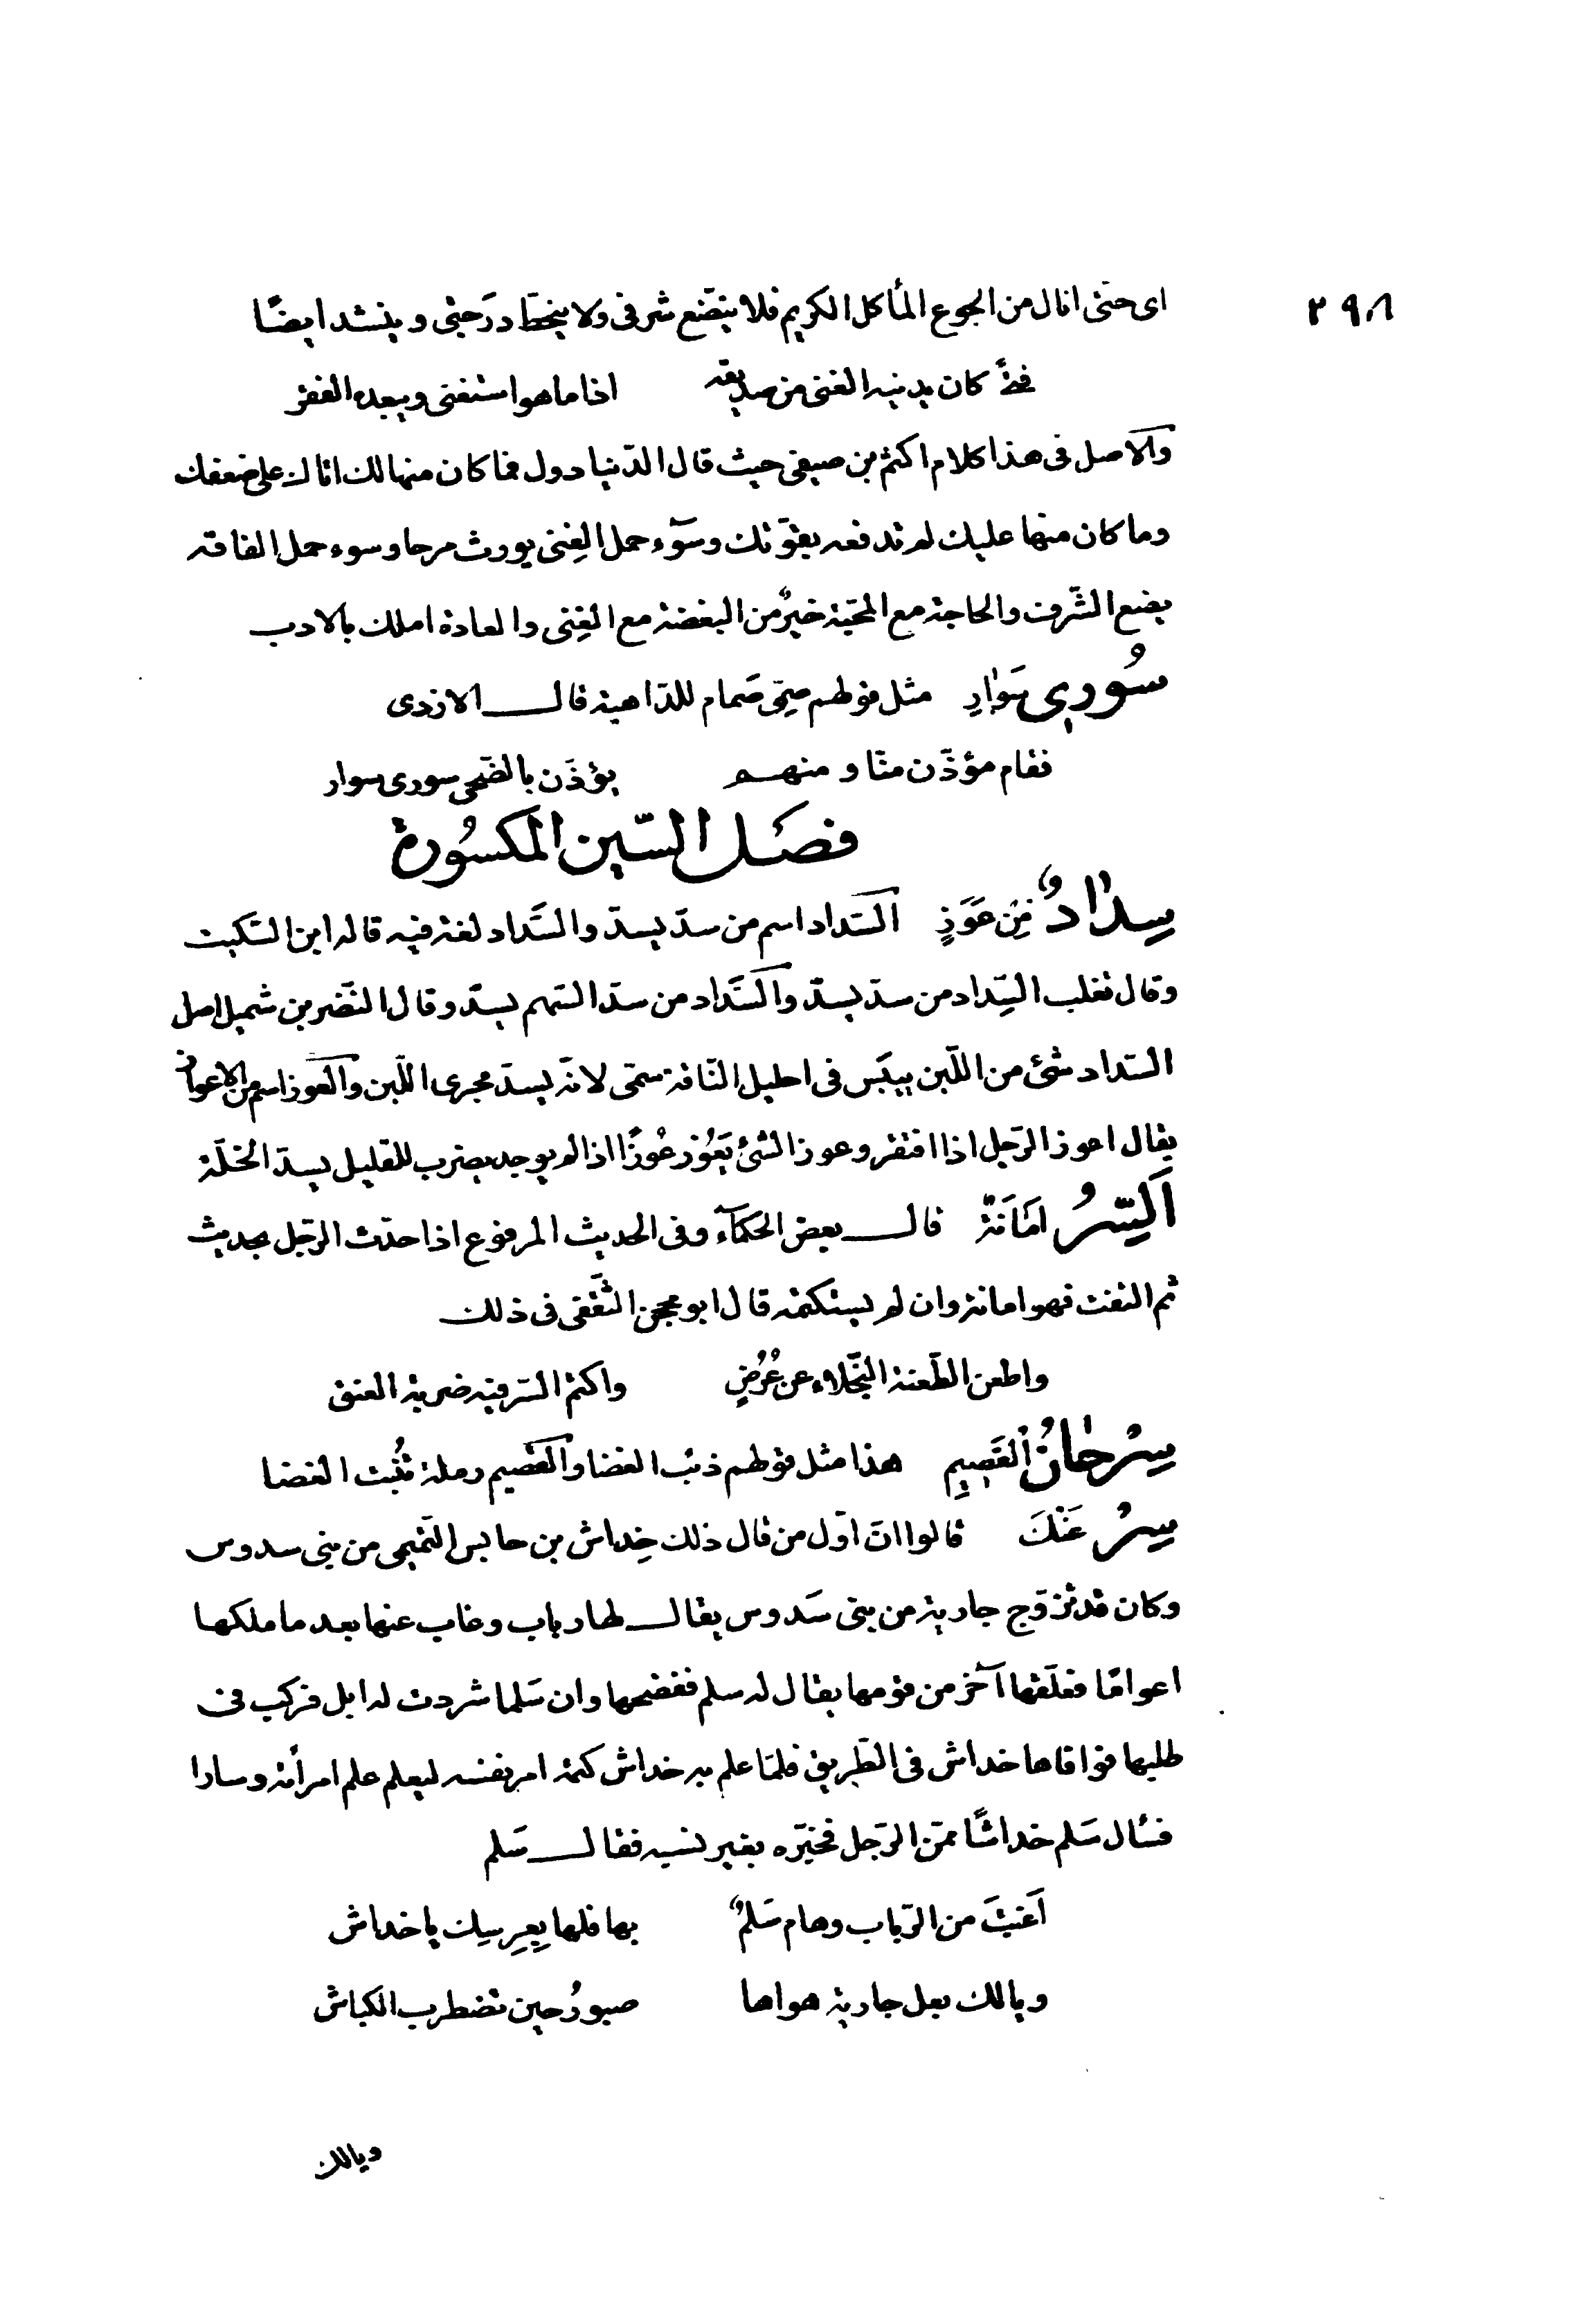 ٣٩٨
اى حتى انال من الجوع المأكل الكريم فلا يتضع شرفى ولا ينحط درجتى وينشد ايضًا
فتى كان يدنيه الغنى من صديقه اذا ما هو استغنى ويبعده الفقر
والاصل فى هذا كلام اكثم بن صيفى حيث قال الدّنيا دول فما كان منها لك اتاك على ضعفك
وما كان منها عليك لم تدفعه بقوّتك وسوٓء حمل الغِنى يورث مرحا وسوء حمل الفاقة
يضع الشّرف والحاجة مع المحبّة خيرٌ من البغضة مع الغِنى والعادة املك بالادب
سُورِى سَوَارِ مثل قولهم صمّى صَمام للدّاهية قال الازدى
فقام مؤذّن منّا و منهم يؤذّن بالضّحى سورى سوار
فصَل السّين المكسُورة
سِدَادٌ مِن عَوَزٍ السّداد اسم من سدّ يسدّ والسَّداد لغة فيه قاله ابن السّكيت
وقال ثعلب السِّداد من سدّ يسدّ والسَّداد من سدّ السّهم يسدّ وقال النّضر بن شميل اصل
السّداد شئ من اللّبن ييبَس فى احليل النّاقة سمّى لانّه يسدّ مجرى اللّبن والعوز اسم من الاعواز
يقال اعوز الرّجل اذا افتقر وعوز الشئ يَعْوُز عَوْزًا اذا لم يوجد يضرب للقليل يسدّ الخلّة
اَلسِّرُّ اَمَانَةٌ قال بعض الحكمآء وفى الحديث المرفوع اذا حدّث الرّجل بحديث
ثم التفت فهو امانة وان لم يستكتمه قال ابو محجن الثَّقفى فى ذلك
واطعن الطّعنة النّجلاء عن عُرُضٍ واكتم السّر فيه ضربة العنق
سِرْحَانُ القَصِيمِ هذا مثل قولهم ذئب الغضا والقصيم رملة تُنبت الغضا
سِرْ عَنْكَ قالوا انّ اوّل من قال ذلك خِداش بن حابس التّميمى من بنى سدوس
وكان قد تزوّج جارية من بنى سَدوس يقال لها رباب وغاب عنها بعد ما ملكها
اعوامًا فعلّقها آخر من قومها يقال له سلم ففضحها وان سَلما شردت له ابل فركب فى
طلبها فوافاها خداش فى الطّريق فلمّا علم به خداش كتمه امر نفسه ليعلم علم امرأته وسارا
فسئال سَلم خداشًا ممّن الرّجل فخبّره بغير نسبه فقال سَلم
اَغبتَ من الرّباب وهام سَلمٌ بها فلها بعِرسِك يا خداش
ويالك بعل جارية هواها صبورٌ حين تضطرب الكباش
ويالك